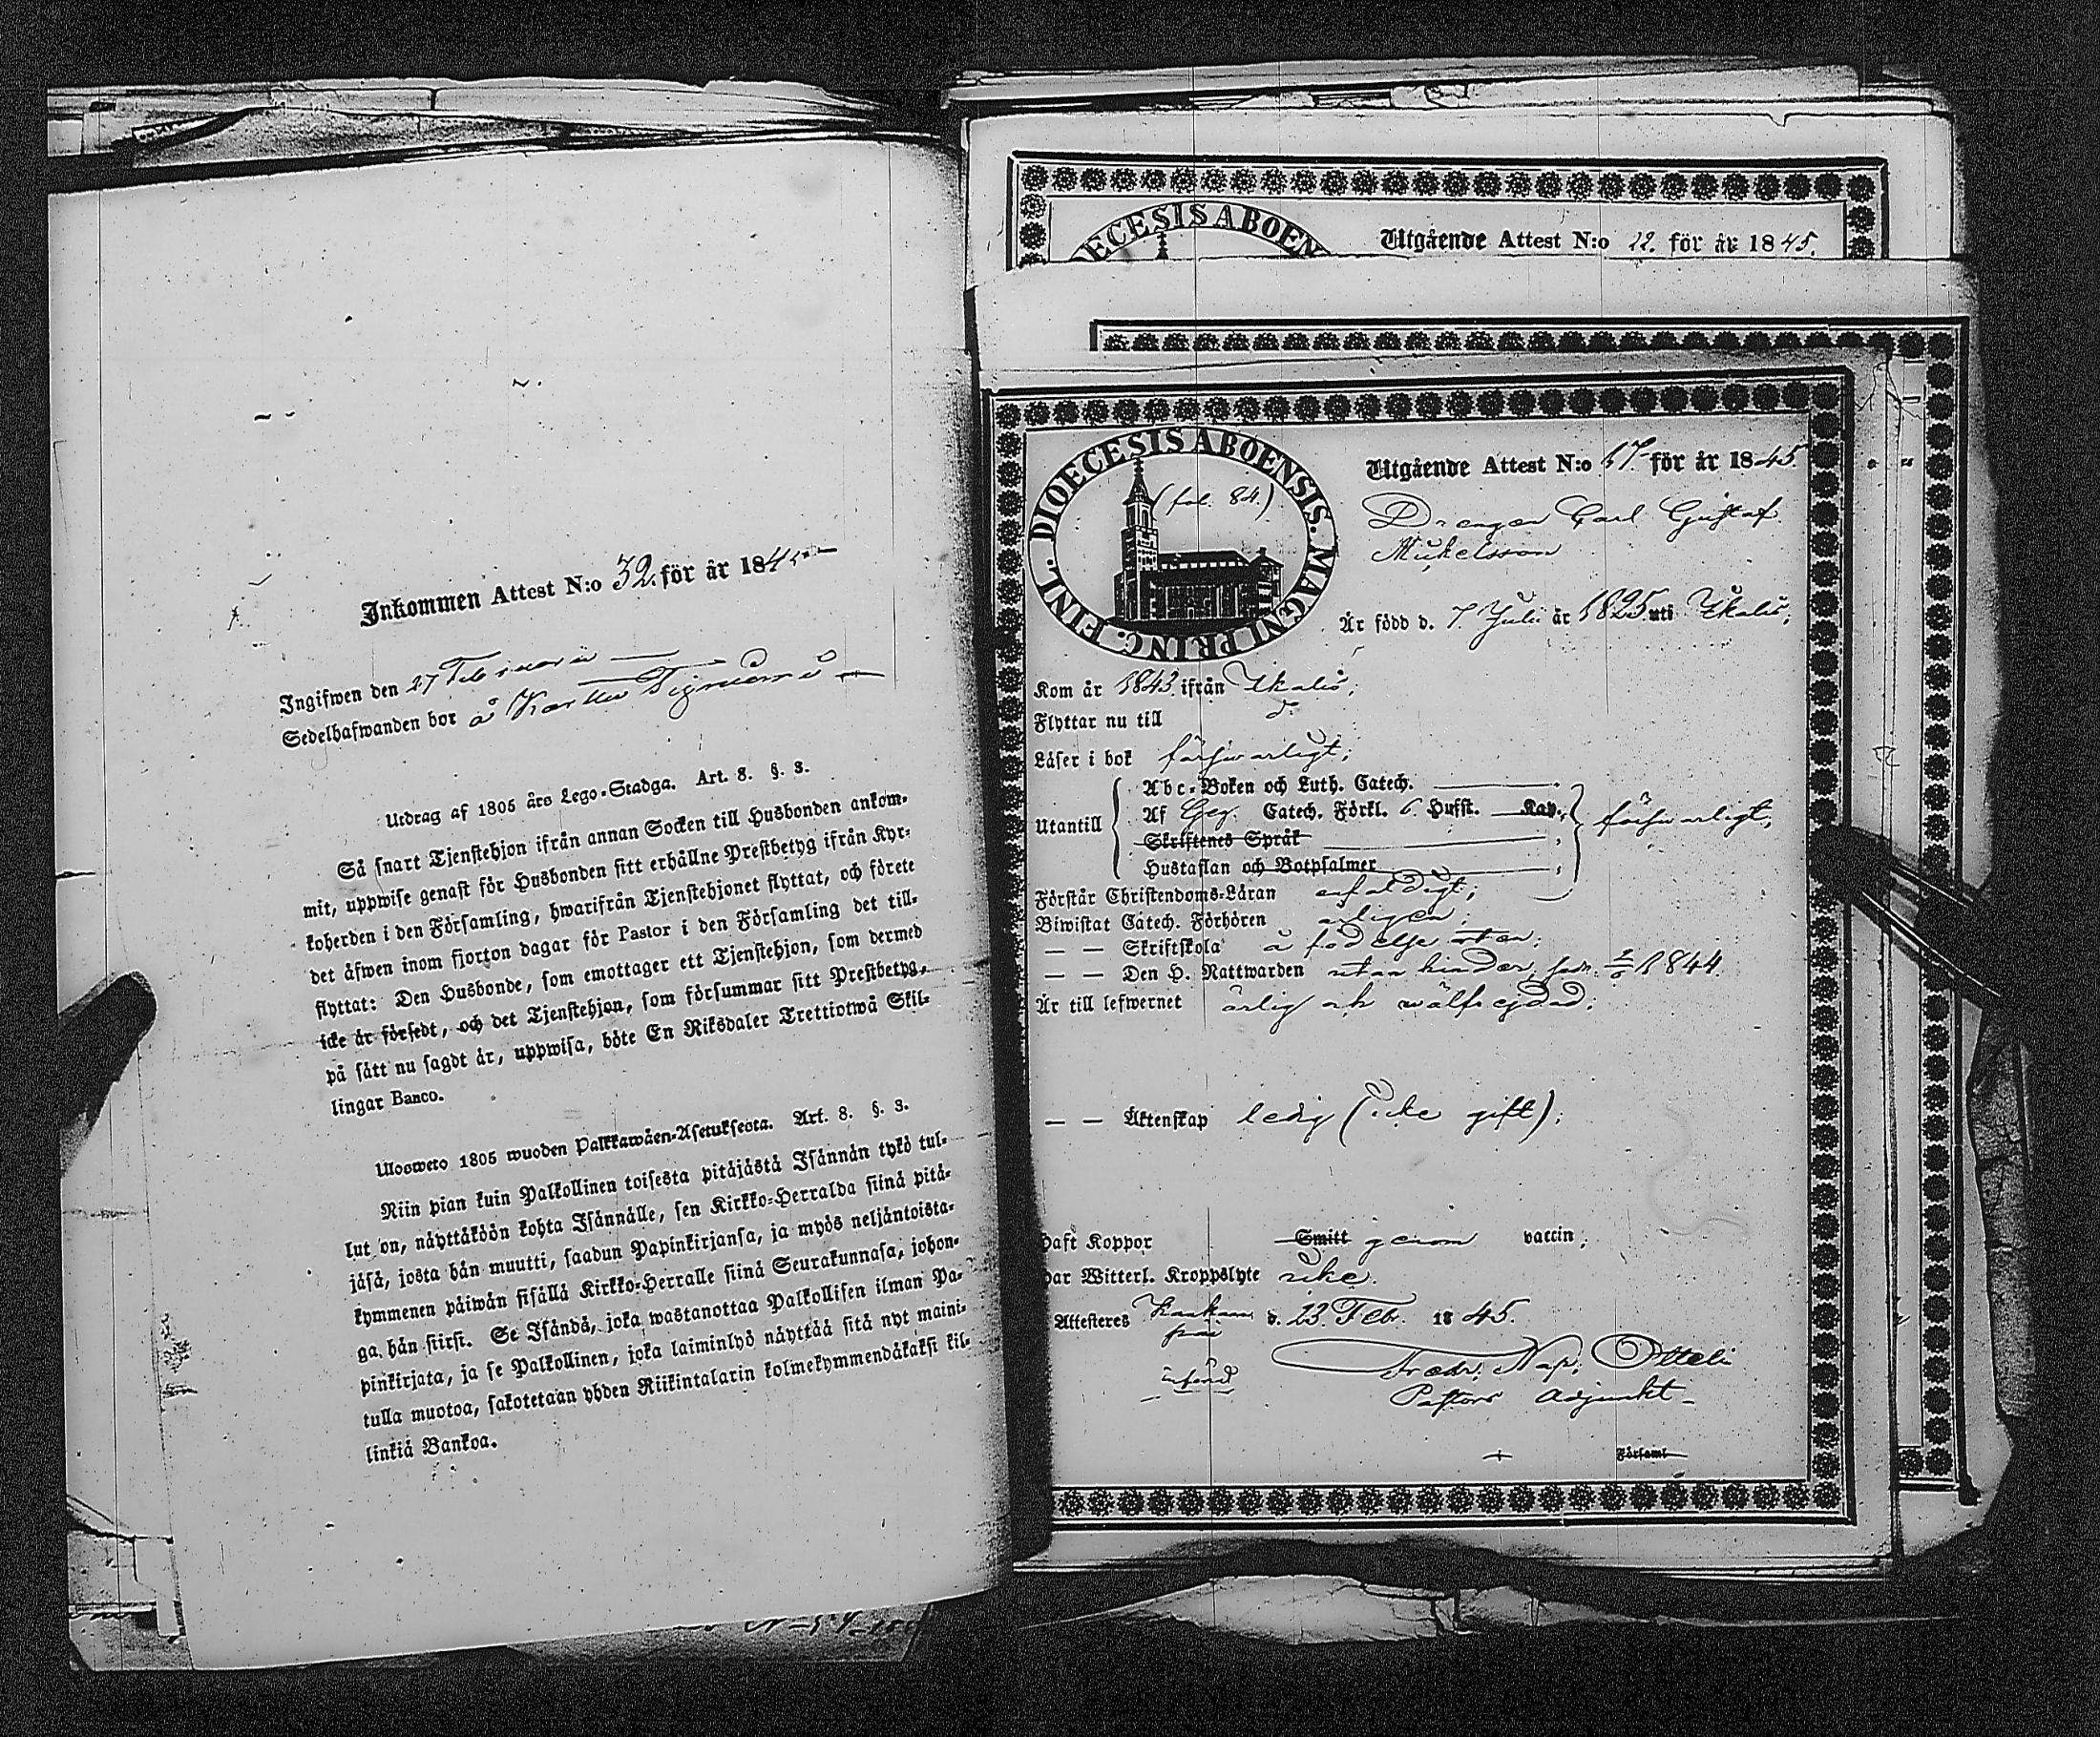 Inkommen Attest N:o 32. för år 184
Ingifwen den 27 Februarii
Sedelhafwanden bor å
Utdrag af 1805 års Lego-Stadga. Art. 8. §. 3.
Så snart Tjenstehjon ifrån annan Socken till Husbonden ankom-
mit, uppwise genast för Husbonden sitt erhållne Prestbetyg ifrån Kyr-
koherden i den Församling, hwarifrån Tjenstehjonet flyttat, och förete
det äfwen inom fjorton dagar för Pastor i den Församling det till-
flyttat: Den Husbonde, som emottager ett Tjenstehjon, som dermed
icke är försedt, och det Tjenstehjon, som försummar sitt Prestbetyg,
på sätt nu sagdt är, uppwisa, böte En Riksdaler Trettiotwå Skil-
lingar Banco.
Ulosweto 1805 wuoden Palkkawäen-Asetuksesta. Art. 8. §. 3.
Niin pian kuin Palkollinen toisesta pitäjästä Isännän tykö tul-
lut on, näyttäköön kohta Isännälle, sen Kirkko-Herralda siinä pitä-
jäsä, josta hän muutti, saadun Papinkirjansa, ja myös neljäntoista-
kymmenen päiwän sisällä Kirkko-Herralle siinä Seurakunnasa, johon-
ga hän siirsi. Se Isändä, joka wastanottaa Palkollisen ilman Pa-
pinkirjata, ja se Palkollinen, joka laiminlyö näyttää sitä nyt maini-
tulla muotoa, sakotetaan yhden Riikintalarin kolmekymmendäkaksi kil-
linkiä Bankoa.
DIOECESIS ABOEN
Utgående Attest N:o 22. för år 1845.
DIOECESIS ABOENSIS. MAGNI PRINC. FINL.
(fol. 84.)
Utgående Attest N:o 17. för år 1845.
Drengen Carl Gustaf
Mickelsson
Är född d. 7 Julii år 1825 uti Ikalis;
Kom år 1843 ifrån Ikalis;
Flyttar nu till d:o
Läser i bok förswarligt;
Utantill
Abc-Boken och Luth. Catech.
Af Catech. Förkl. 6. Hufst. Kap.
förswarligt;
Skriftenes Språk
Hustaflan och Botpsalmer
Förstår Christendoms-Läran enfaldigt;
Biwistat Catech. Förhören årligen;
— — Skriftskola å födelse orten;
— — Den H. Nattwarden utan hinder, 1844.
Är till lefwernet ärlig och wälfregdad;
— — Äktenskap ledig (icke gift);
Haft Koppor Smitt genom vaccin;
Har Witterl. Kroppslyte icke.
Attesteres d. 13 Febr. 1845.
Fredr. Nap. Ottelin
Pastors Adjunkt
Församl